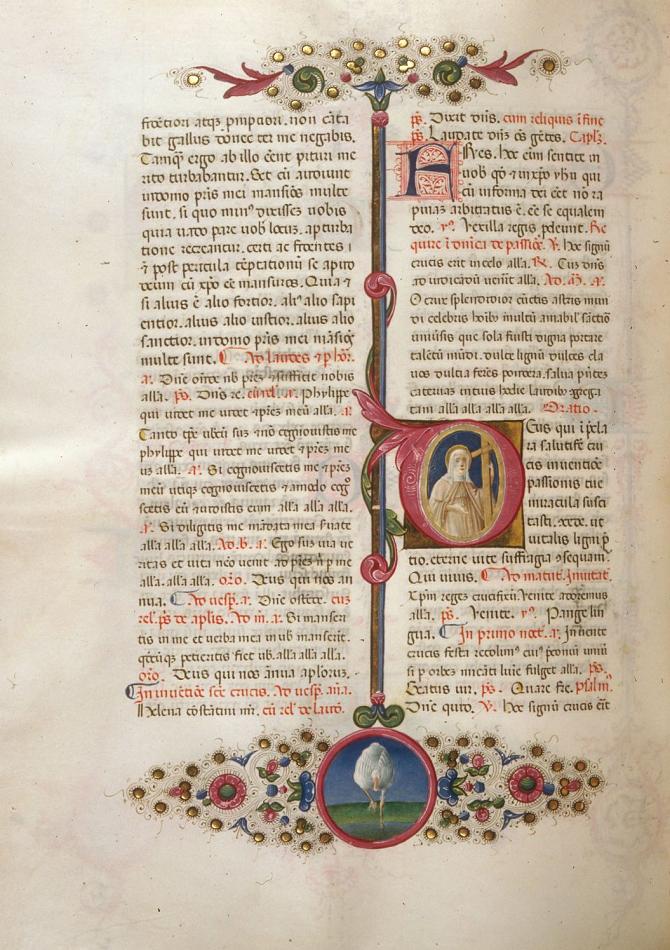 bit gallus donec ter me negabis.
Tamqȝ ergo ab illo ceteri
rito turbabantur. Set cū audiunt
indomo pr̄is mei mansiões multe
sunt. si quo minꝰ dixissez uobis
quia uado pare uob̄ locuz. apturba
tione recreantur. certi ac fidentes
⁊ post pericula tēptationū se apud
deum cū xp̄o eē mansuros. Quia ⁊
si alius ē alio fortior. aliꝰ alio sapi
entior. alius alio iustior. alius alio
sanctior. indomo pr̄is mei māsiōes
multe sunt. Ad laudes ⁊ p hōr.
a. Dn̄e ostēde nb̄ prēȝ ⁊ sufficit nobis
alla. ps̄. Dn̄s re. cū rel̄. a. Phylippe
qui uidet me uidet ⁊prēȝ meū alla. a.
Tanto tp̄e uobiscū suȝ ⁊nō cognouistis me
phylippe qui uidet me uidet ⁊ prēȝ me
uȝ alla. a. Si cognouissetis me ⁊prēȝ
meū utiqȝ cognouissetis ⁊ amodo cog
scetis eū ⁊uidistis eum alla alla alla.
a. Si diligitis me mādata mea s̄uate
alla alla alla. Ad. b. a. Ego suȝ uia ue
ritas et uita nēo uenit ad prēȝ n̄ p me
alla. alla alla. oro. Deus qui nos an
nua. Ad uesp̄. a. Dn̄e ostēde. cuȝ
rel. ps̄ de aplis. Ad m̄. a. Si manseri
tis in me et uerba mea in uob̄ manserit.
qđcūqȝ petieritis fiet uob̄. alla alla alla.
oro. Deus qui nos ānua aplorꝝ.
In inuētiōe sc̄e crucis. Ad uesp̄. an̄a.
Helena cōstātini mr̄. cū rel̄ de laud̄.
ps̄. Dixit dn̄s. cum reliquis ī fine
ps̄. Laudate dn̄z oēs gētes. Caplȝ.
Fr̄es. hoc eim sentite in
uob̄ qđ ⁊ in xp̄o yh̄u qui
cū in forma dei eēt nō ra
pinaȝ arbitratus ē. eē se equalem
deo. yꝰ. Vexilla regis ꝓdeunt. Re
quire ī dn̄ica de passiōe. V. hoc signū
crucis erit in celo alla. R. Cuȝ dn̄s
ad iudicādū uenit alla. Ad. m̄. a.
O crux splendidior cūctis astris mun
do celebris hoīb̄ multū amabil̄ sāctior
uniuersis que sola fuisti digna portare
talētū mūdi. dulce lignū dulces cla
uos dulcia ferēs pondera. salua p̄ntez
cateruaȝ in tuis hodie laudib̄ ꝯgrega
tam alla alla alla. Oratio.
Deus qui ī p̄cla
ra salutifē cru
cis inuentiōe
passionis tue
miracula susci
tasti. ꝯcede. ut
uitalis ligni p̄
tio. eterne uite suffragia ꝯsequamᷣ.
Qui uiuis. Ad matut. Inuitat.
Xp̄m regeȝ crucifixū. Venite adoremus
alla. ps̄. Venite. yꝰ. Pange lin
gua. In primo noct̄. a. Inuente
crucis festa recolimꝰ
si p orbez micāti luce fulget alla. ps̄.
Beatus uir. ps̄. Quare fre. psalm̄.
Dn̄e quid. V. Hoc signū crucis erit